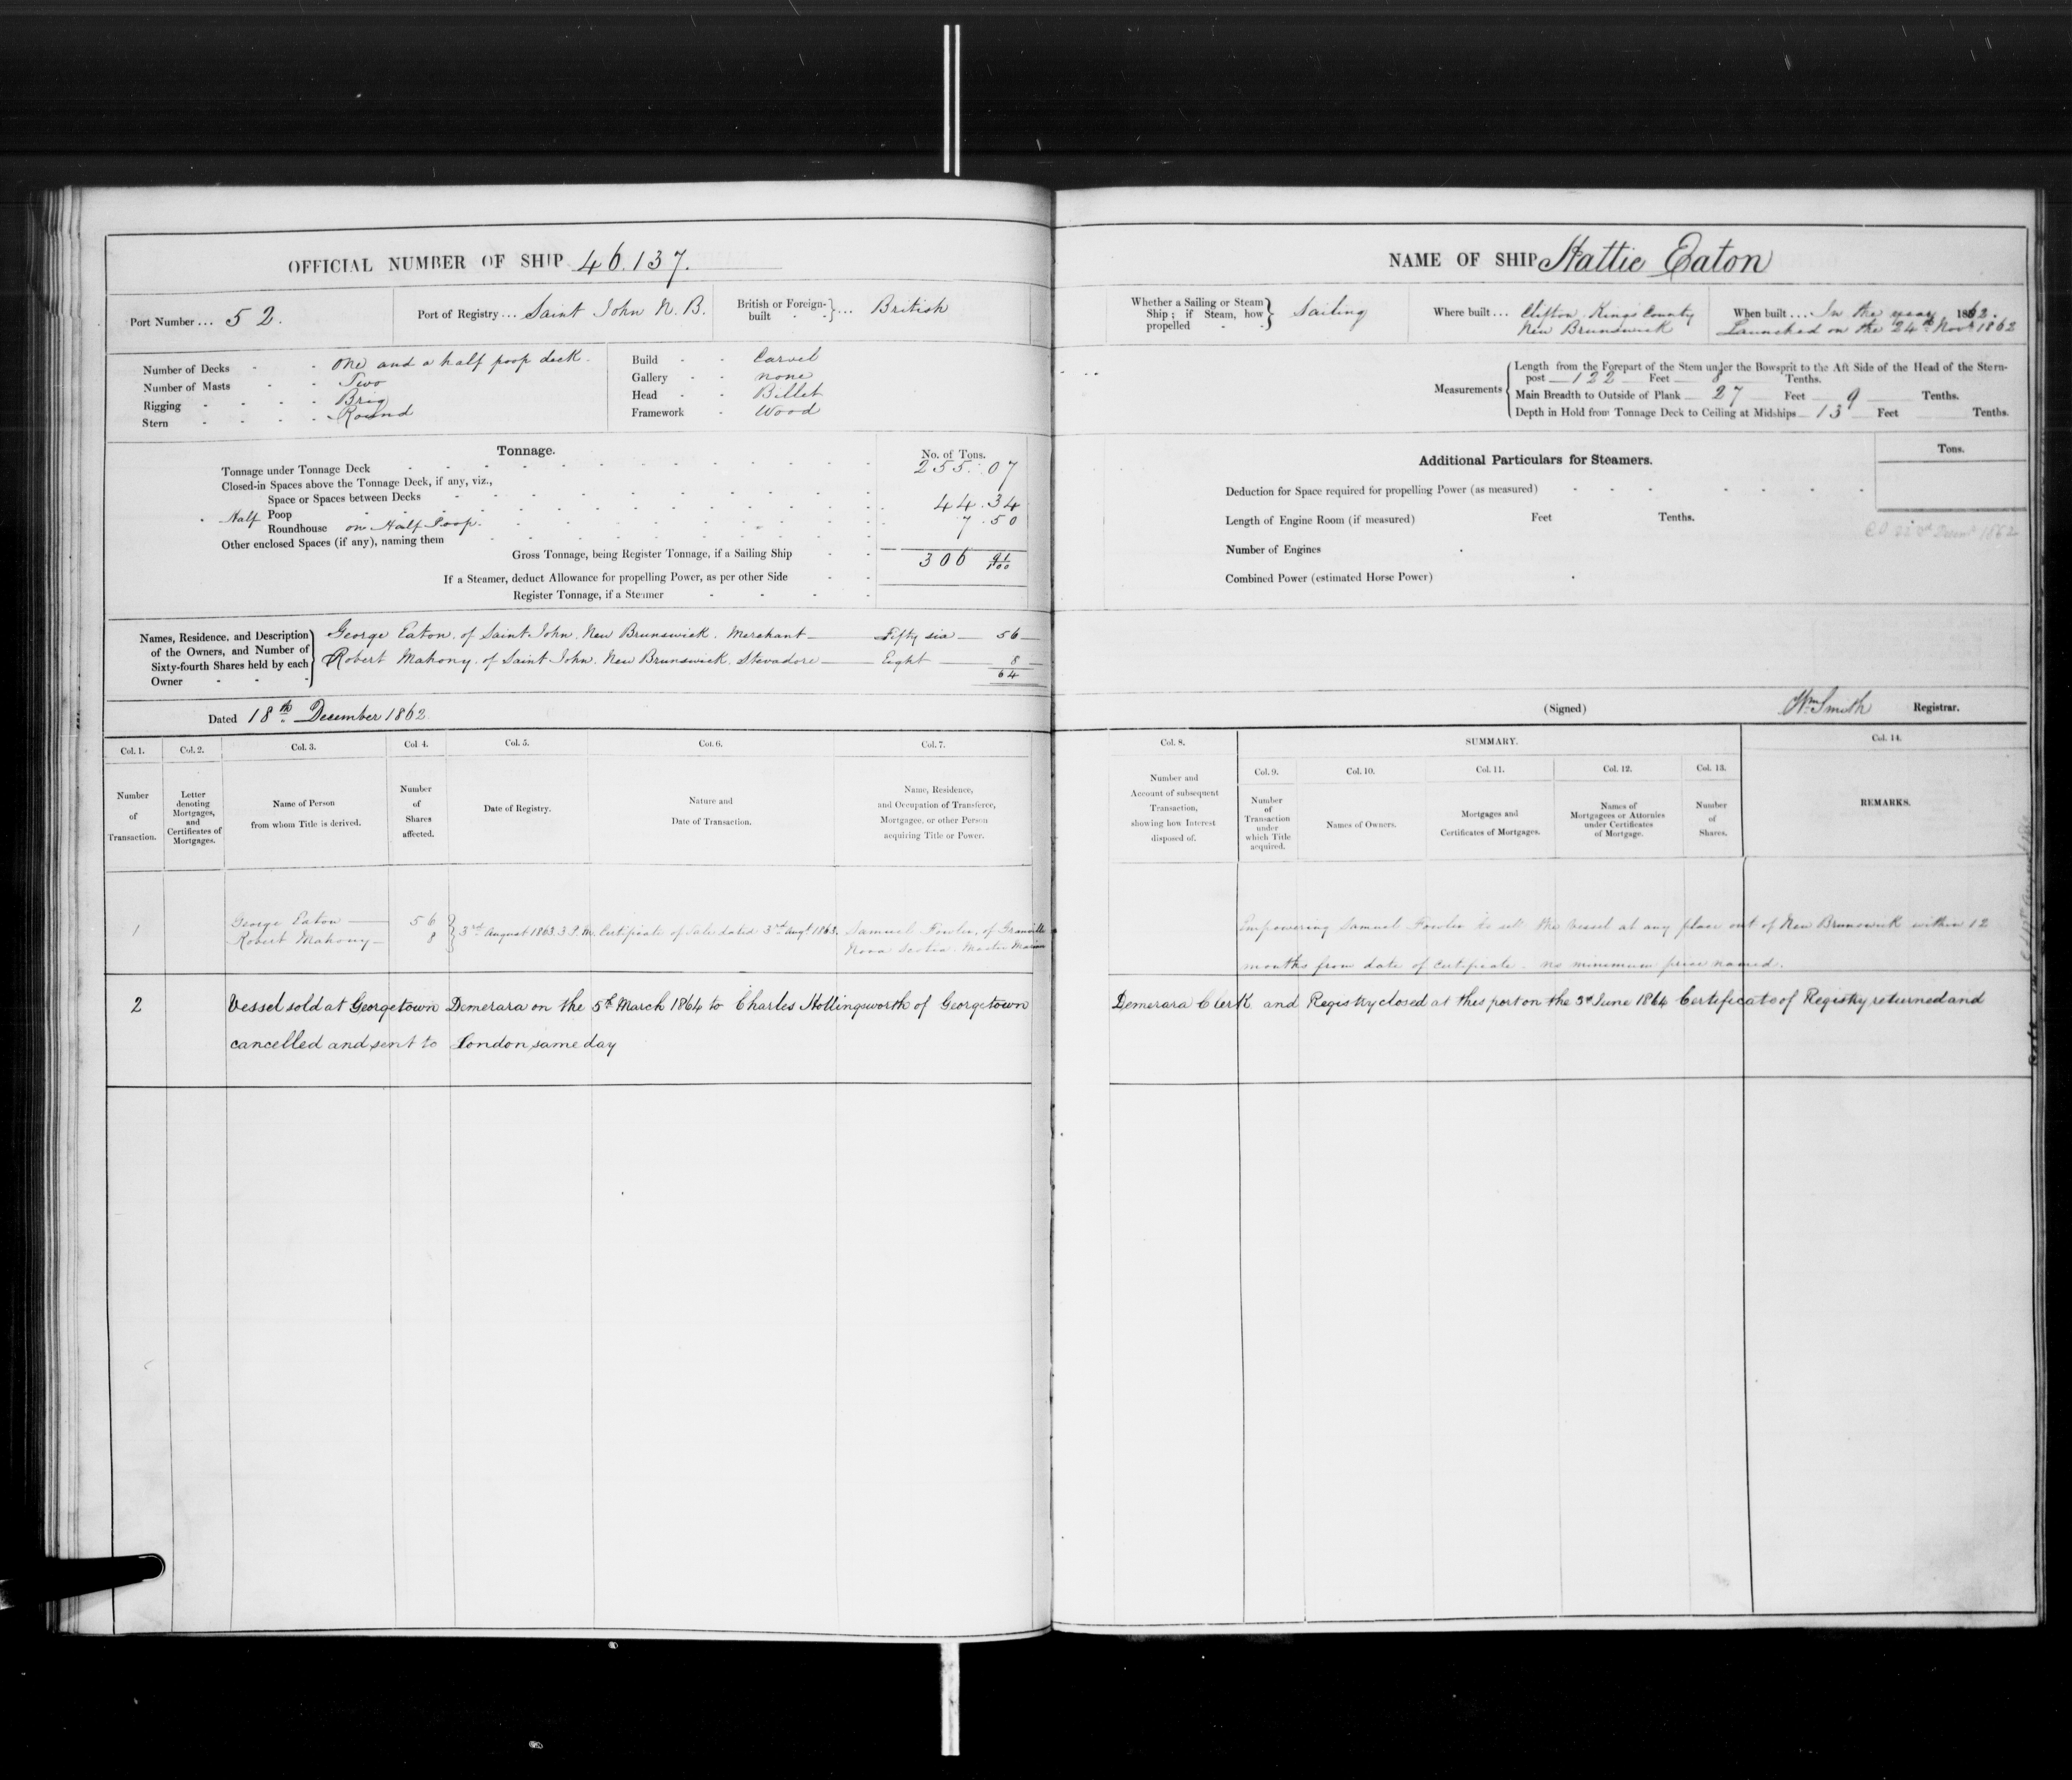 OFFICIAL NUMBER OF SHIP 46.137.
Port Number ... 52.
Port of Registry ... Saint John N.B.
British or Foreign-built } ... British
Number of Decks - - One and a half poop deck.
Number of Masts - - Two
Rigging - - - - Brig
Stern - - - - Round
Build - - Carvel
Gallery - - none
Head - - Billet
Framework - Wood
Tonnage.
No. of Tons.
Tonnage under Tonnage Deck 255.07
Closed-in Spaces above the Tonnage Deck, if any, viz.,
Space or Spaces between Decks
Half Poop 44.34
Roundhouse on Half Poop. 7.50
Other enclosed Spaces (if any), naming them
Gross Tonnage, being Register Tonnage, if a Sailing Ship 306 91/100
If a Steamer, deduct Allowance for propelling Power, as per other Side
Register Tonnage, if a Steamer
Names, Residence, and Description of the Owners, and Number of Sixty-fourth Shares held by each Owner
George Eaton. of Saint John. New Brunswick. Merchant — Fifty six — 56 —
Robert Mahony. of Saint John. New Brunswick. Stevadore — Eight — 8 —
64
Dated 18th December 1862
Col. 1. Col. 2. Col. 3. Col. 4. Col. 5. Col. 6. Col. 7.
Number of Transaction.
Letter denoting Mortgages, and Certificates of Mortgages.
Name of Person from whom Title is derived.
Number of Shares affected.
Date of Registry.
Nature and Date of Transaction.
Name, Residence, and Occupation of Transferee, Mortgagee, or other Person acquiring Title or Power.
1 George Eaton — 56
Robert Mahony — 8
3rd August 1863. 3 P.M. Certificate of Sale dated 3rd Augt. 1863. Samuel Fowler, of Granville
Nova Scotia. Master Mariner
2 Vessel sold at Georgetown Demerara on the 5th March 1864 to Charles Hollingsworth of Georgetown
cancelled and sent to London same day
NAME OF SHIP Hattie Eaton
Whether a Sailing or Steam Ship; if Steam, how propelled } Sailing
Where built ... Clifton. King's County
New Brunswick
When built ... In the year 1862.
Launched on the 24th Novr 1862
Measurements
Length from the Forepart of the Stem under the Bowsprit to the Aft Side of the Head of the Stern-
post — 122 — Feet — 8 Tenths.
Main Breadth to Outside of Plank — 27 Feet — 9 Tenths.
Depth in Hold from Tonnage Deck to Ceiling at Midships — 13 — Feet Tenths.
Additional Particulars for Steamers.
Tons.
Deduction for Space required for propelling Power (as measured)
Length of Engine Room (if measured) Feet Tenths.
Number of Engines
Combined Power (estimated Horse Power)
(Signed) Wm Smith Registrar.
Col. 8. SUMMARY. Col. 14.
Col. 9. Col. 10. Col. 11. Col. 12. Col. 13.
Number and Account of subsequent Transaction, showing how Interest disposed of.
Number of Transaction under which Title acquired.
Names of Owners.
Mortgages and Certificates of Mortgages.
Names of Mortgagees or Attornies under Certificates of Mortgage.
Number of Shares.
REMARKS.
Empowering Samuel Fowler to sell the Vessel at any place out of New Brunswick within 12
months from date of Certificate. no minimum price named.
Demerara Clerk and Registry closed at this port on the 3d June 1864 Certificate of Registry returned and